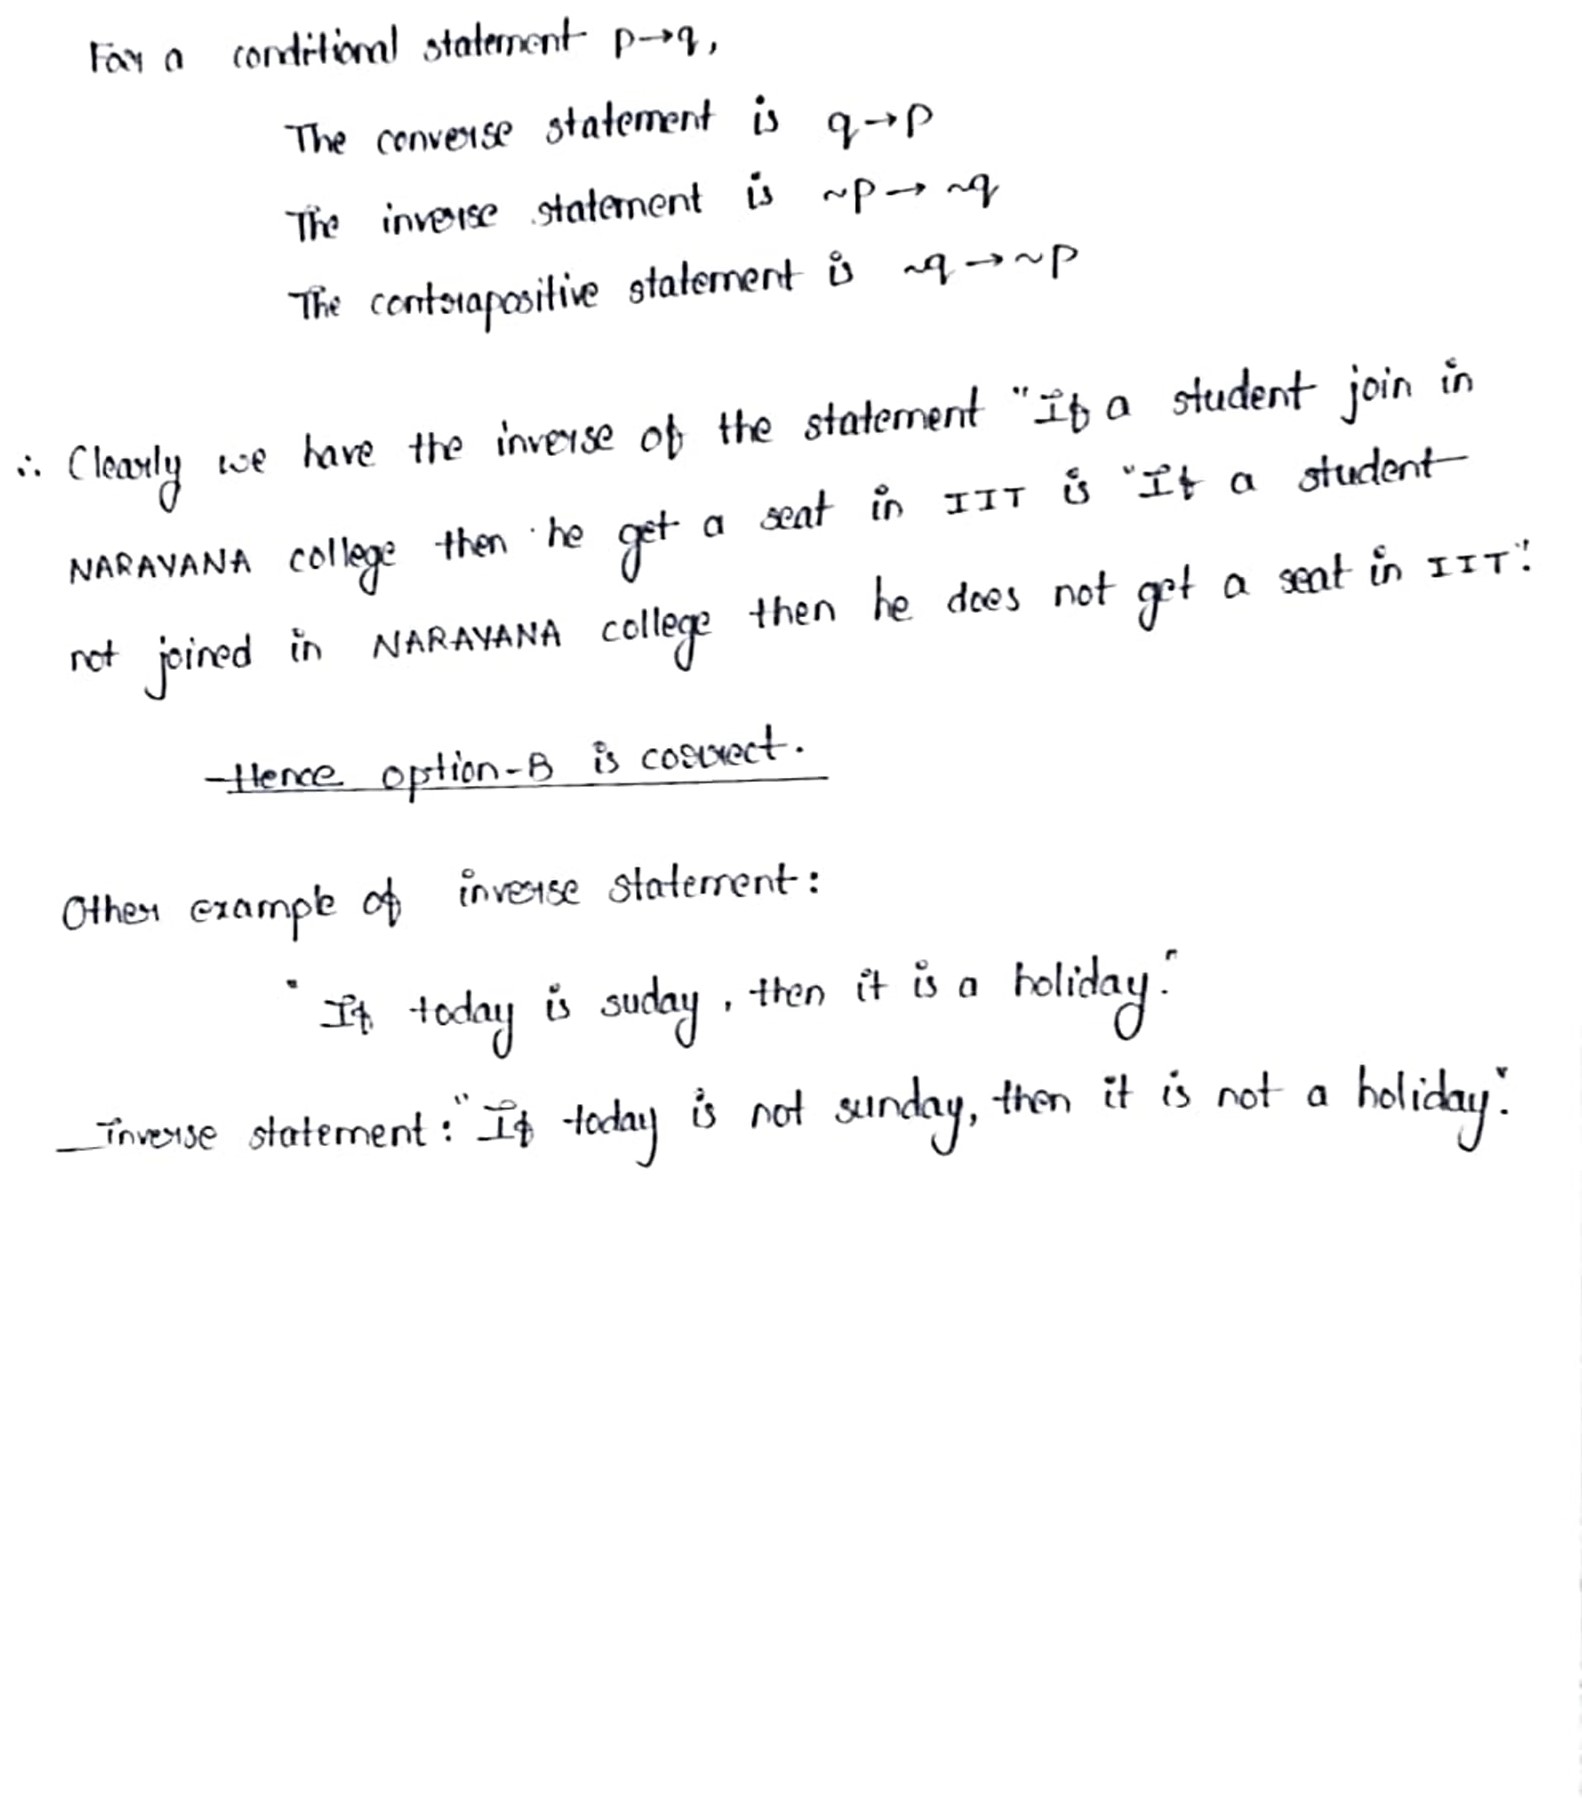 For a conditional statement p→q,
The converse statement is q→p
The inverse statement is ~p→ ~q
The contrapositive statement is ~q→~p
∴ Clearly we have the inverse of the statement "If a student join in
NARAYANA college then he get a seat in IIT is "If a student
not joined in NARAYANA college then he does not get a seat in IIT".
Hence option-B is correct.
Other example of inverse statement:
"If today is suday, then it is a holiday."
Inverse statement: "If today is not sunday, then it is not a holiday".